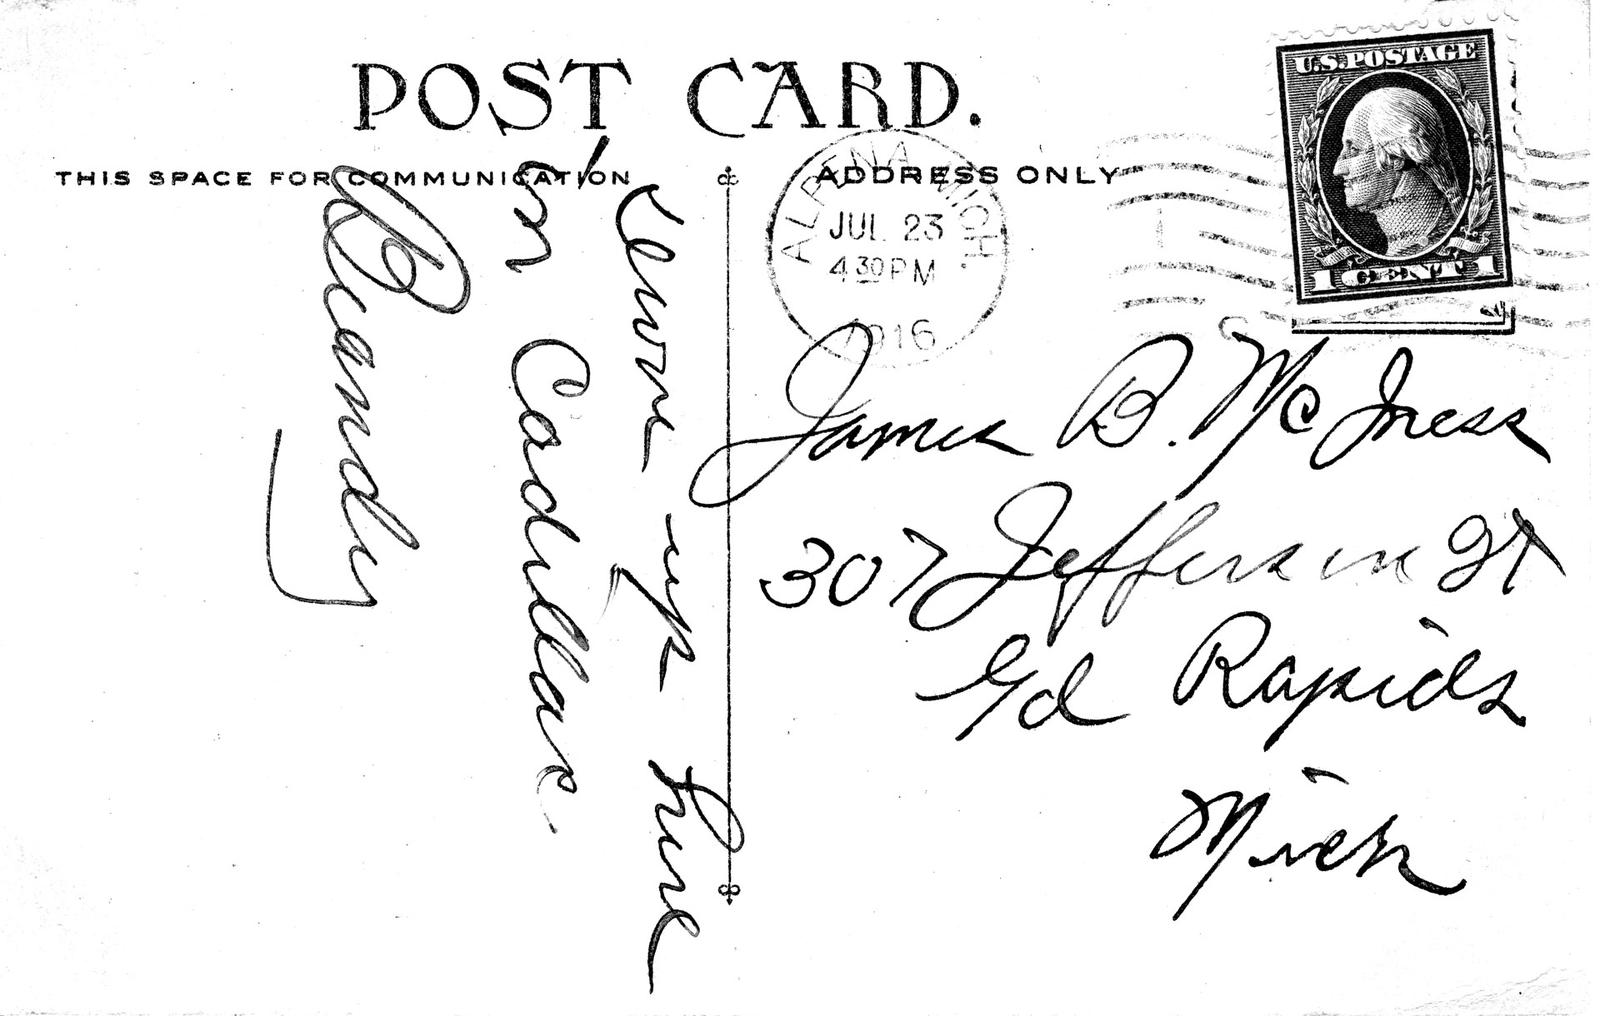 POST CARD.
THIS SPACE FOR COMMUNICATION
ADDRESS ONLY
ALPENA MICH.
JUL 23
4 30 PM
1916
U.S. POSTAGE
1 CENT 1
Drove up here
in Cadillac.
Beamdy
James B. Mc Iness
307 Jefferson St
Gd Rapids
Mich